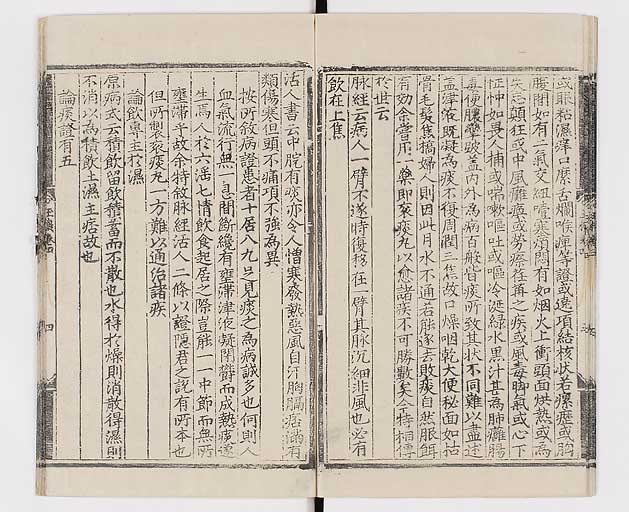 或眼黏濕痒口糜舌爛喉痺等證或遶項結核狀若瘰癧或胷
腹間如有二氣交紐噎塞煩悶有如烟火上衝頭面烘熱或為
失志顚狂或中風癱瘓或勞瘵荏苒之疾或風毒脚氣或心下
怔忡如畏人捕或喘嗽嘔吐或嘔冷涎綠水黒汁甚為肺癰腸
毒便膿攣跛盖内外為病百般皆痰所致其狀不同難以盡述
盖津液既凝為痰不復周潤三焦故口燥咽乾大便秘面如枯
骨毛髮焦槁婦人則因此月水不通若能逐去敗痰自然服餌
有効余嘗用一藥即衮痰丸以愈諸疾不可勝數矣今特相傳
於世云
脉經云病人一臂不遂時復移在一臂其脉沉細非風也必有
飲在上焦
活人書云中脘有痰亦令人憎寒發熱惡風自汗胷膈痞滿有
類傷寒但頭不痛項不強為異
按所敘病證患者十居八九旦見痰之為病誠多也何則人
血氣流行無一息間斷纔有壅滯津液凝閉欝而成熱痰遂
生焉人於六淫七情飲食起居之際豈能一一中節而無所
壅滯乎故余特敘脉經活人二條以證隱君之說有所本也
但所製衮痰丸一方難以通治諸疾
論飲鼻主於濕
原病式云積飲留飲積蓄而不散也水得於燥則消散得濕則
不消以為積飲土濕主痞故也
論痰證有五
四